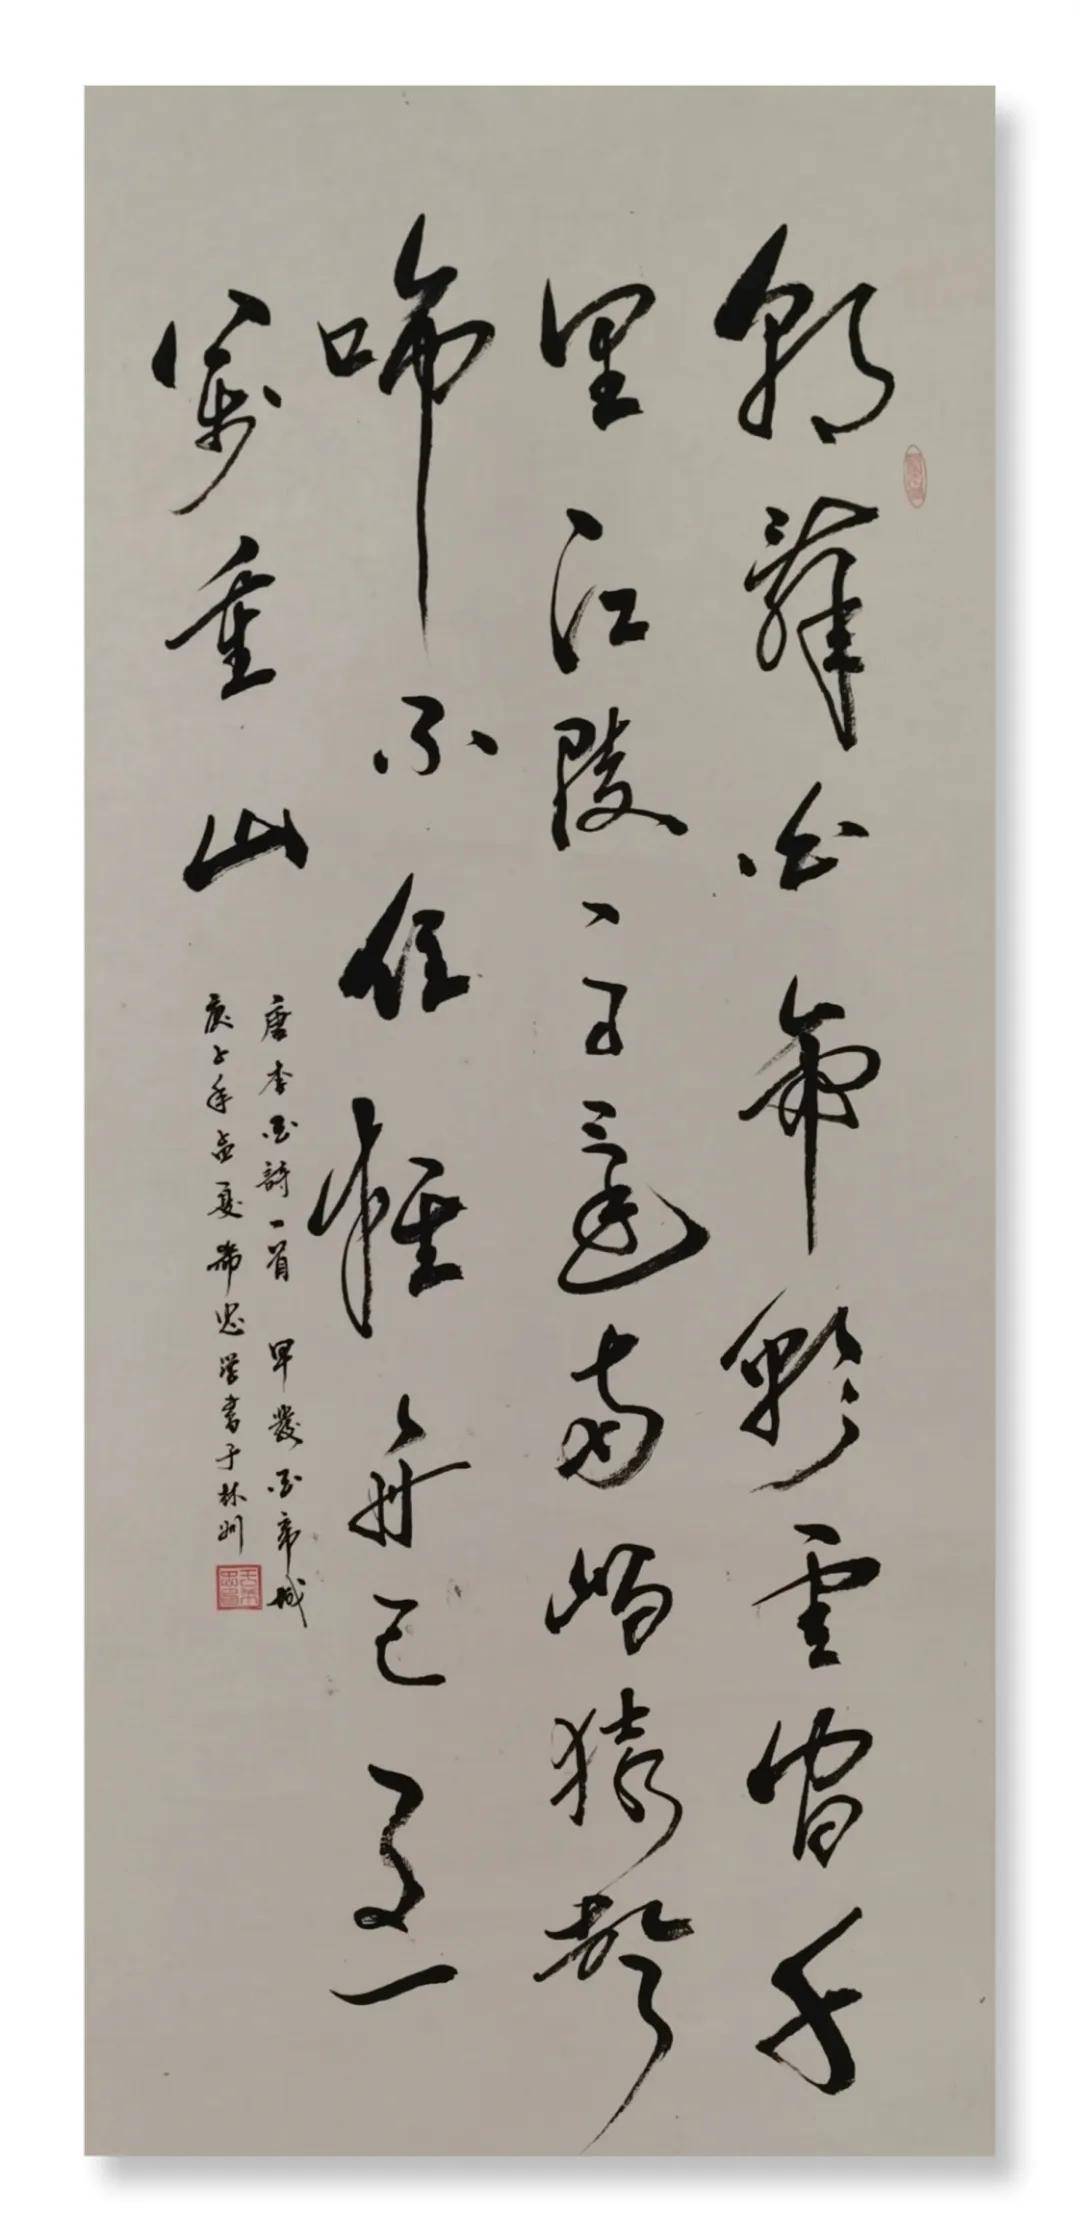 朝辞白帝彩雲间千
里江陵一日還两岸猿聲
啼不住軽舟已過一
萬重山
唐李白詩一首 早發白帝城
庚子年孟夏 希忠学書于林州